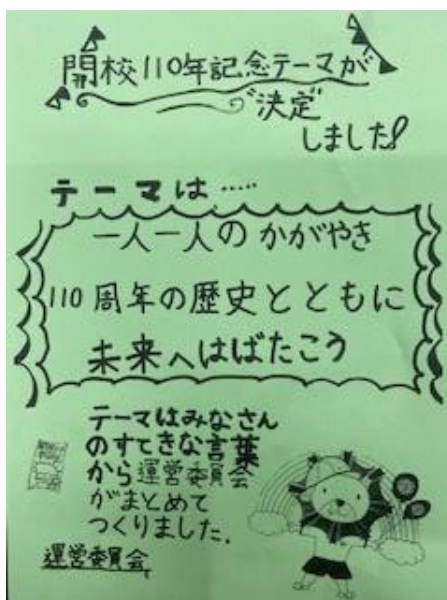 開校110年記念テーマが
"決定"
しました!
テーマは……
一人一人のかがやき
110周年の歴史とともに
未来へはばたこう
テーマはみなさん
のすてきな言葉
から運営委員会
がまとめて
つくりました.
運営委員会